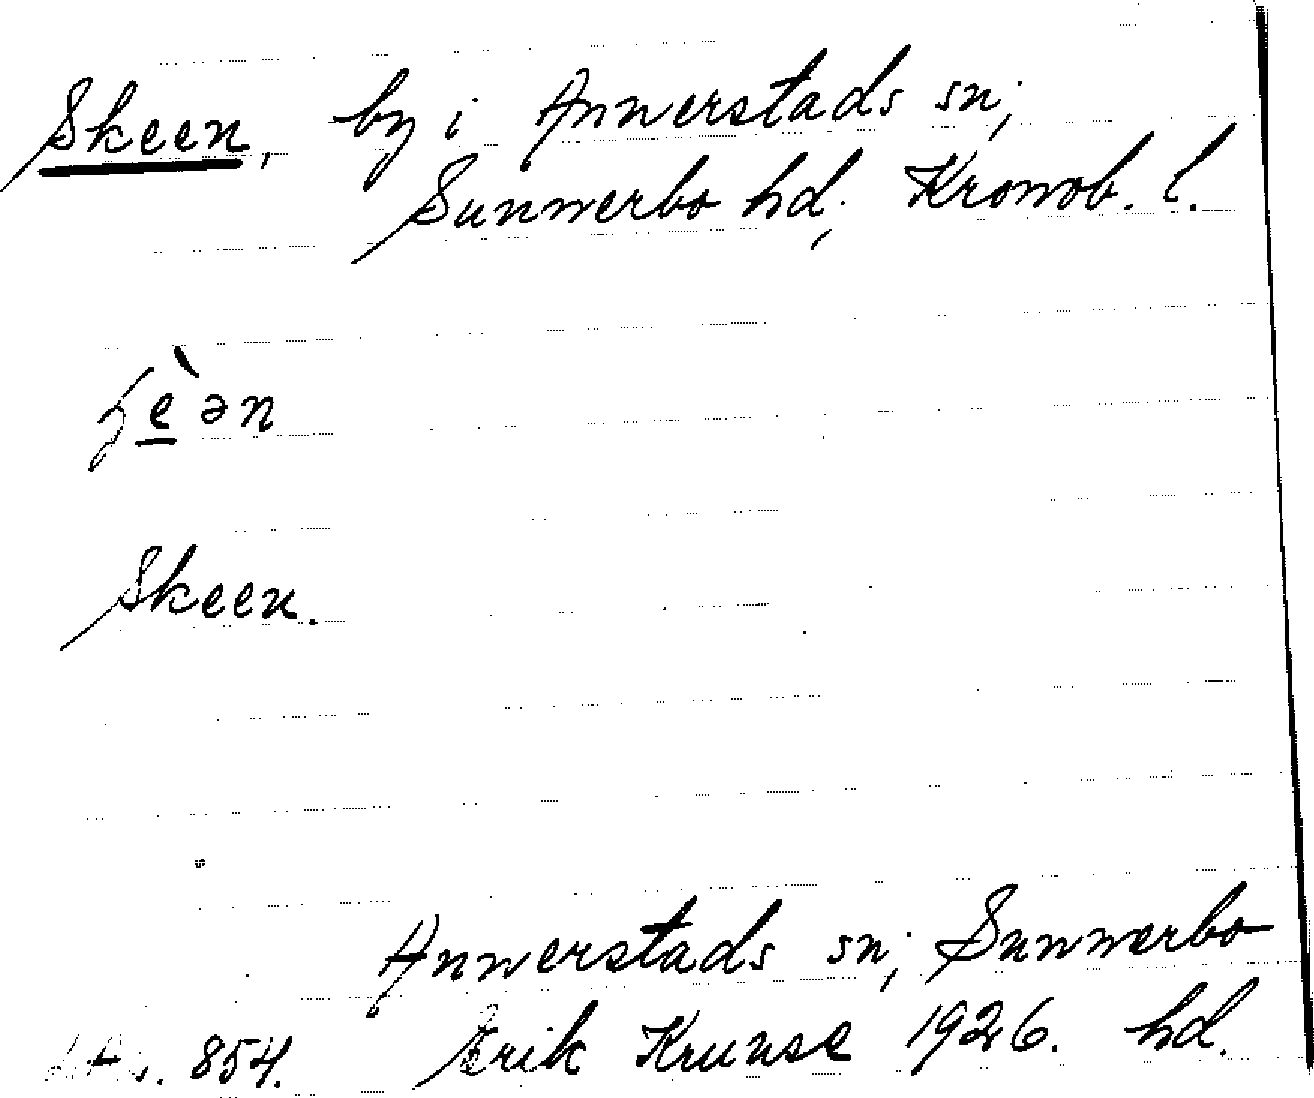 Skeen, by i Annerstads sn.,
Sunnerbo hd., Kronob. l.
Skeen.
Annerstads sn., Sunnerbo
854. Erik Kruuse 1926. hd.